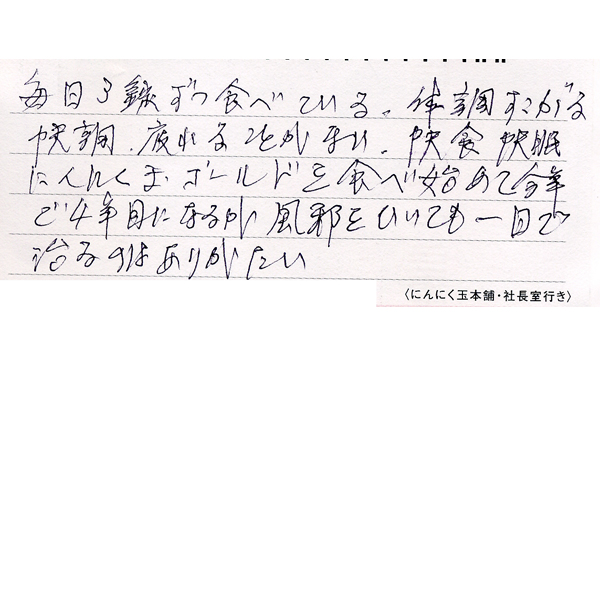 毎日3錠ずつ食べている。体調すこぶる
快調。疲れることがない。快食快眠
にんにく玉ゴールドを食べ始めて今年
で4年目になるが風邪をひいても一日で
治るのはありがたい
〈にんにく玉本舗・社長室行き〉